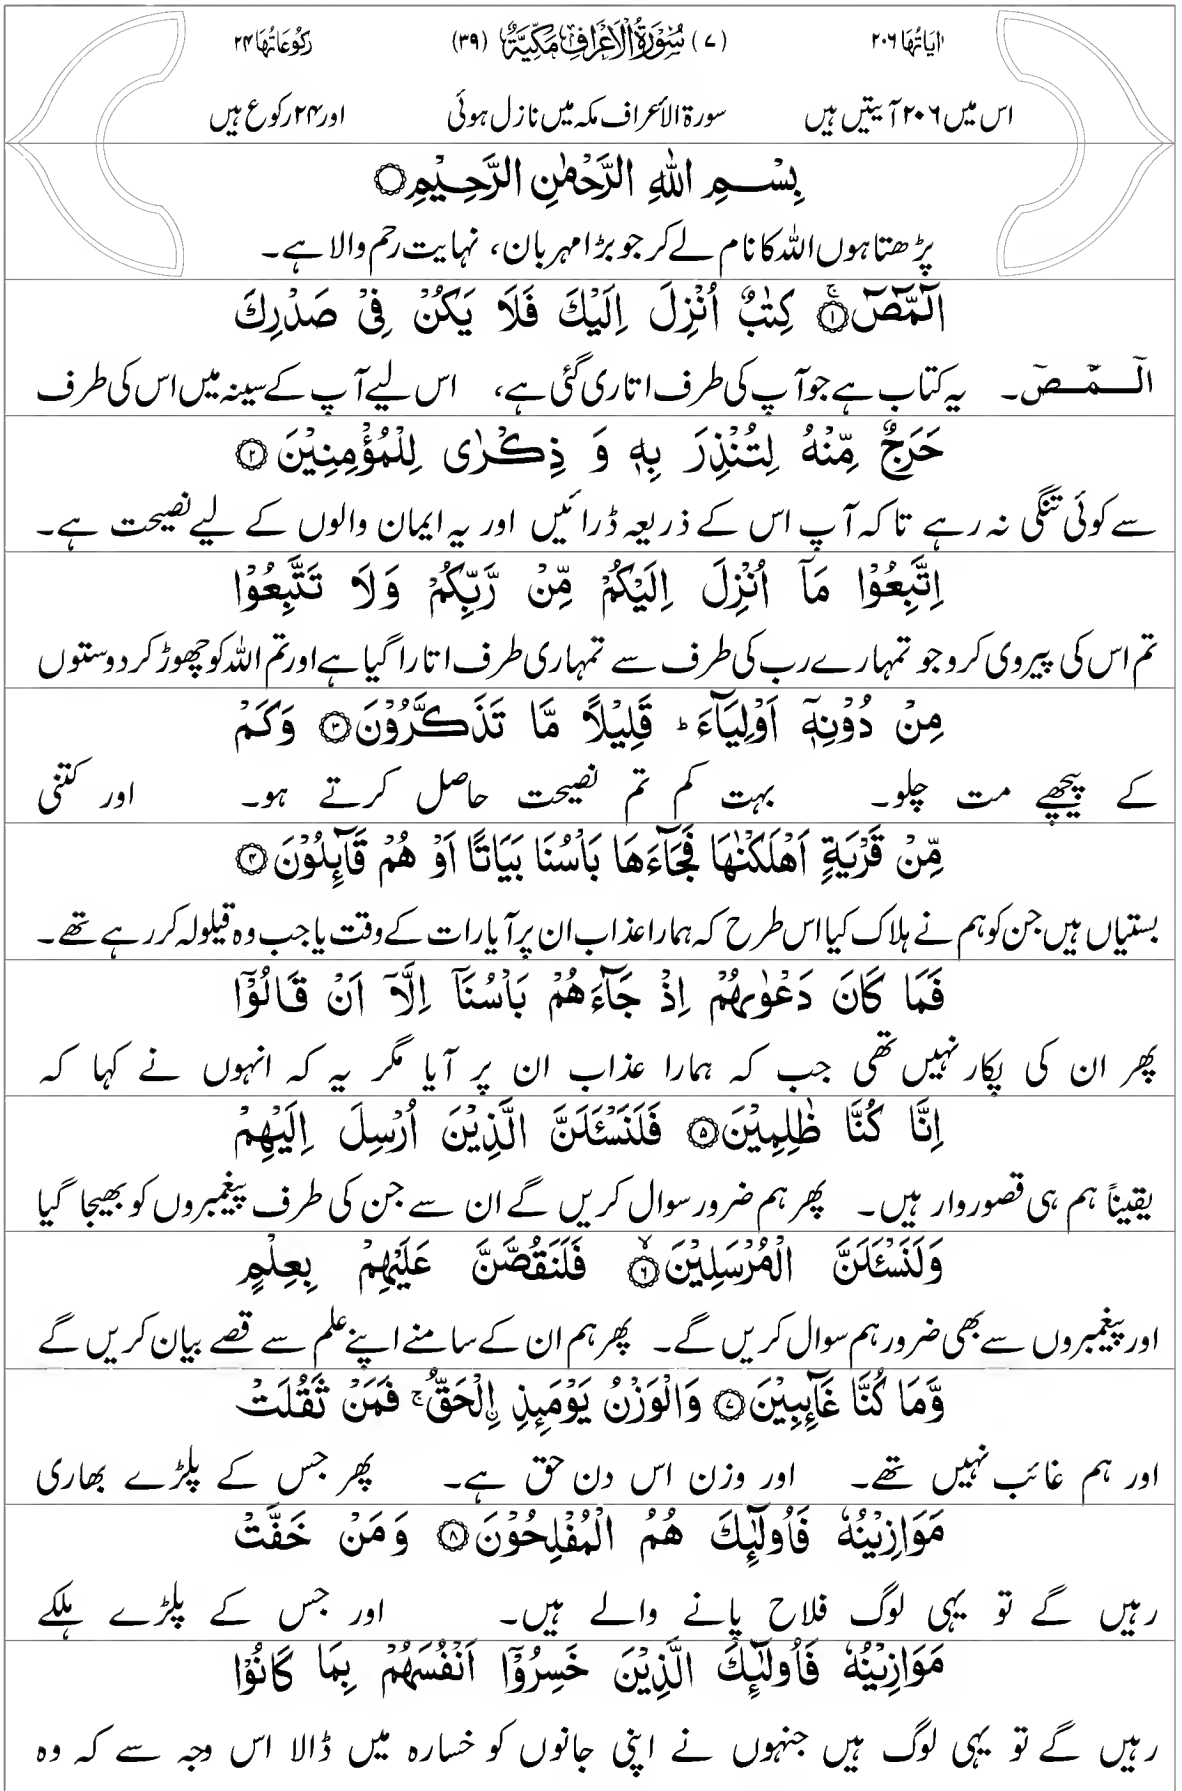 اٰیَاتُهَا ۲۰۶ (۷) سُوْرَةُ الْاَعْرَافِ مَكِّيَّةٌ (۳۹) رُكُوْعَاتُهَا ۲۴
اس میں ۲۰۶ آیتیں ہیں سورۃ الأعراف مکہ میں نازل ہوئی اور ۲۴ رکوع ہیں
بِسْمِ اللّٰهِ الرَّحْمٰنِ الرَّحِيْمِ
پڑھتا ہوں اللہ کا نام لے کر جو بڑا مہربان، نہایت رحم والا ہے۔
الٓمّٓصٓ ۚ﴿۱﴾ كِتٰبٌ اُنْزِلَ اِلَيْكَ فَلَا يَكُنْ فِيْ صَدْرِكَ
الٓـمّـٓـصٓ۔ یہ کتاب ہے جو آپ کی طرف اتاری گئی ہے، اس لیے آپ کے سینہ میں اس کی طرف
حَرَجٌ مِّنْهُ لِتُنْذِرَ بِهٖ وَ ذِكْرٰى لِلْمُؤْمِنِيْنَ ﴿۲﴾
سے کوئی تنگی نہ رہے تاکہ آپ اس کے ذریعہ ڈرائیں اور یہ ایمان والوں کے لیے نصیحت ہے۔
اِتَّبِعُوْا مَاۤ اُنْزِلَ اِلَيْكُمْ مِّنْ رَّبِّكُمْ وَلَا تَتَّبِعُوْا
تم اس کی پیروی کرو جو تمہارے رب کی طرف سے تمہاری طرف اتارا گیا ہے اور تم اللہ کو چھوڑ کر دوستوں
مِنْ دُوْنِهٖۤ اَوْلِيَآءَ ؕ قَلِيْلًا مَّا تَذَكَّرُوْنَ ﴿۳﴾ وَكَمْ
کے پیچھے مت چلو۔ بہت کم تم نصیحت حاصل کرتے ہو۔ اور کتنی
مِّنْ قَرْيَةٍ اَهْلَكْنٰهَا فَجَآءَهَا بَاْسُنَا بَيَاتًا اَوْ هُمْ قَآئِلُوْنَ ﴿۴﴾
بستیاں ہیں جن کو ہم نے ہلاک کیا اس طرح کہ ہمارا عذاب ان پر آیا رات کے وقت یا جب وہ قیلولہ کر رہے تھے۔
فَمَا كَانَ دَعْوٰىهُمْ اِذْ جَآءَهُمْ بَاْسُنَاۤ اِلَّاۤ اَنْ قَالُوْۤا
پھر ان کی پکار نہیں تھی جب کہ ہمارا عذاب ان پر آیا مگر یہ کہ انہوں نے کہا کہ
اِنَّا كُنَّا ظٰلِمِيْنَ ﴿۵﴾ فَلَنَسْئَلَنَّ الَّذِيْنَ اُرْسِلَ اِلَيْهِمْ
یقیناً ہم ہی قصوروار ہیں۔ پھر ہم ضرور سوال کریں گے ان سے جن کی طرف پیغمبروں کو بھیجا گیا
وَلَنَسْئَلَنَّ الْمُرْسَلِيْنَ ۙ﴿۶﴾ فَلَنَقُصَّنَّ عَلَيْهِمْ بِعِلْمٍ
اور پیغمبروں سے بھی ضرور ہم سوال کریں گے۔ پھر ہم ان کے سامنے اپنے علم سے قصے بیان کریں گے
وَّمَا كُنَّا غَآئِبِيْنَ ﴿۷﴾ وَالْوَزْنُ يَوْمَئِذِ ۣالْحَقُّ ۚ فَمَنْ ثَقُلَتْ
اور ہم غائب نہیں تھے۔ اور وزن اس دن حق ہے۔ پھر جس کے پلڑے بھاری
مَوَازِيْنُهٗ فَاُولٰٓئِكَ هُمُ الْمُفْلِحُوْنَ ﴿۸﴾ وَمَنْ خَفَّتْ
رہیں گے تو یہی لوگ فلاح پانے والے ہیں۔ اور جس کے پلڑے ہلکے
مَوَازِيْنُهٗ فَاُولٰٓئِكَ الَّذِيْنَ خَسِرُوْۤا اَنْفُسَهُمْ بِمَا كَانُوْا
رہیں گے تو یہی لوگ ہیں جنہوں نے اپنی جانوں کو خسارہ میں ڈالا اس وجہ سے کہ وہ